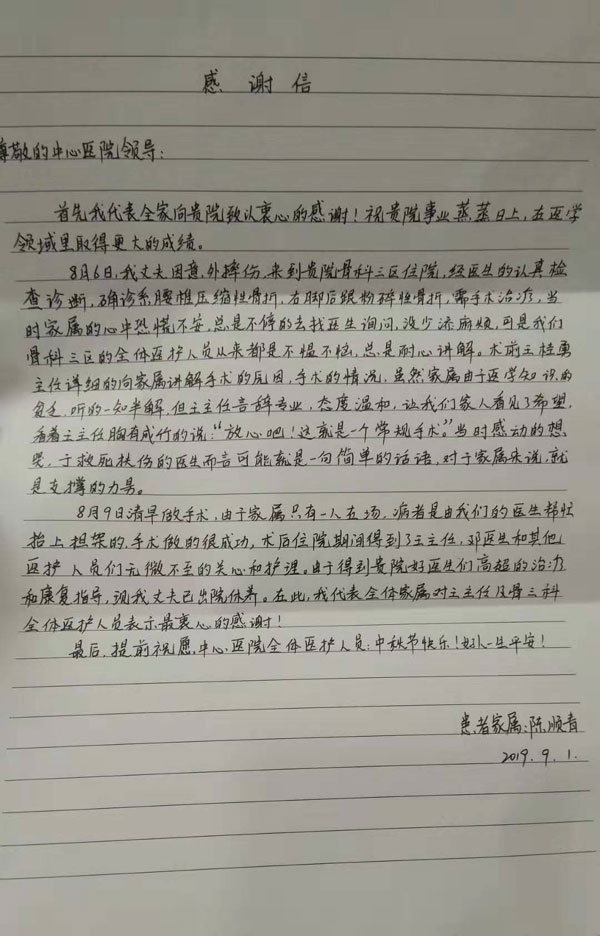 感谢信
尊敬的中心医院领导：
首先我代表全家向贵院致以衷心的感谢！祝贵院事业蒸蒸日上，在医学
领域里取得更大的成绩。
8月6日，我丈夫因意外摔伤，来到贵院骨科三区住院，经医生的认真检
查诊断，确诊系腰椎压缩性骨折，右脚后跟粉碎性骨折，需手术治疗，当
时家属的心中恐慌不安，总是不停的去找医生询问，没少添麻烦，可是我们
骨科三区的全体医护人员从来都是不愠不恼，总是耐心讲解。术前王桂勇
主任详细的向家属讲解手术的原因，手术的情况，虽然家属由于医学知识的
匮乏，听的一知半解，但王主任言辞专业，态度温和，让我们家人看见了希望，
看着王主任胸有成竹的说：“放心吧！这就是一个常规手术。”当时感动的想
哭，于救死扶伤的医生而言可能就是一句简单的话语，对于家属来说，就
是支撑的力量。
8月9日清早做手术，由于家属只有一人在场，病者是由我们的医生帮忙
抬上担架的，手术做的很成功，术后住院期间得到了王主任，邓医生和其他
医护人员们无微不至的关心和护理。由于得到贵院好医生们高超的治疗
和康复指导，现我丈夫已出院休养。在此，我代表全体家属对王主任及骨三科
全体医护人员表示最衷心的感谢！
最后，提前祝愿，中心医院全体医护人员：中秋节快乐！好人一生平安！
患者家属：陈顺青
2019.9.1.